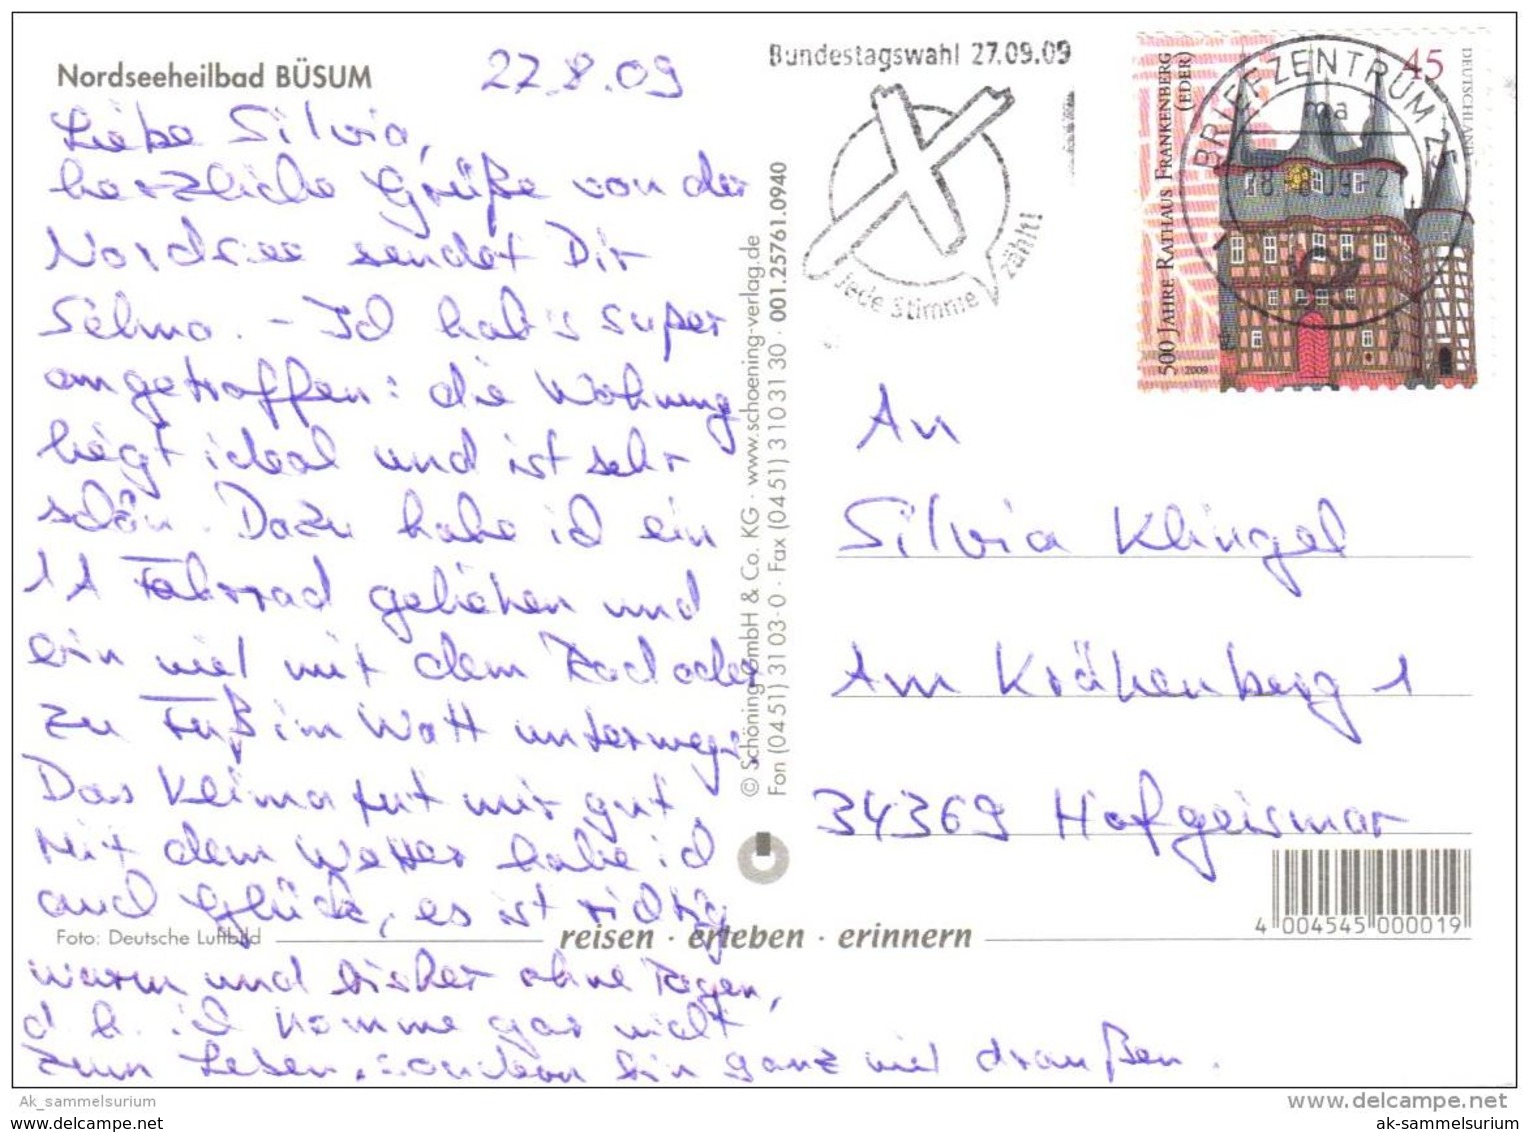 Nordseeheilbad BÜSUM
22.8.09
Liebe Silvia,
herzliche Grüße von der
Nordsee sendet Dir
Selma. - Ich hab's super
angetroffen: die Wohnung
liegt ideal und ist sehr
schön. Dazu habe ich ein
1A Fahrrad geliehen und
bin viel mit dem Rad oder
zu Fuß im Watt unterwegs.
Das Klima tut mir gut
Mit dem Wetter habe ich
auch Glück, es ist richtig
warm und bisher ohne Regen,
d.h. ich komme gar nicht
zum Lesen, sondern bin ganz viel draußen.
Foto: Deutsche Luftbild
reisen · erleben · erinnern
© Schöning GmbH & Co. KG · www.schoening-verlag.de
Fon (04 51) 31 03-0 · Fax (04 51) 3 10 31 30 · 001.25761.0940
Bundestagswahl 27.09.09
Jede Stimme zählt!
BRIEFZENTRUM 25
ma
500 JAHRE RATHAUS FRANKENBERG
(EDER)
45
DEUTSCHLAND
2009
An
Silvia Klingel
Am Krähenberg 1
34369 Hofgeismar
4 004545 000019
Ak_sammelsurium
www.delcampe.net
www.delcampe.net
ak-sammelsurium